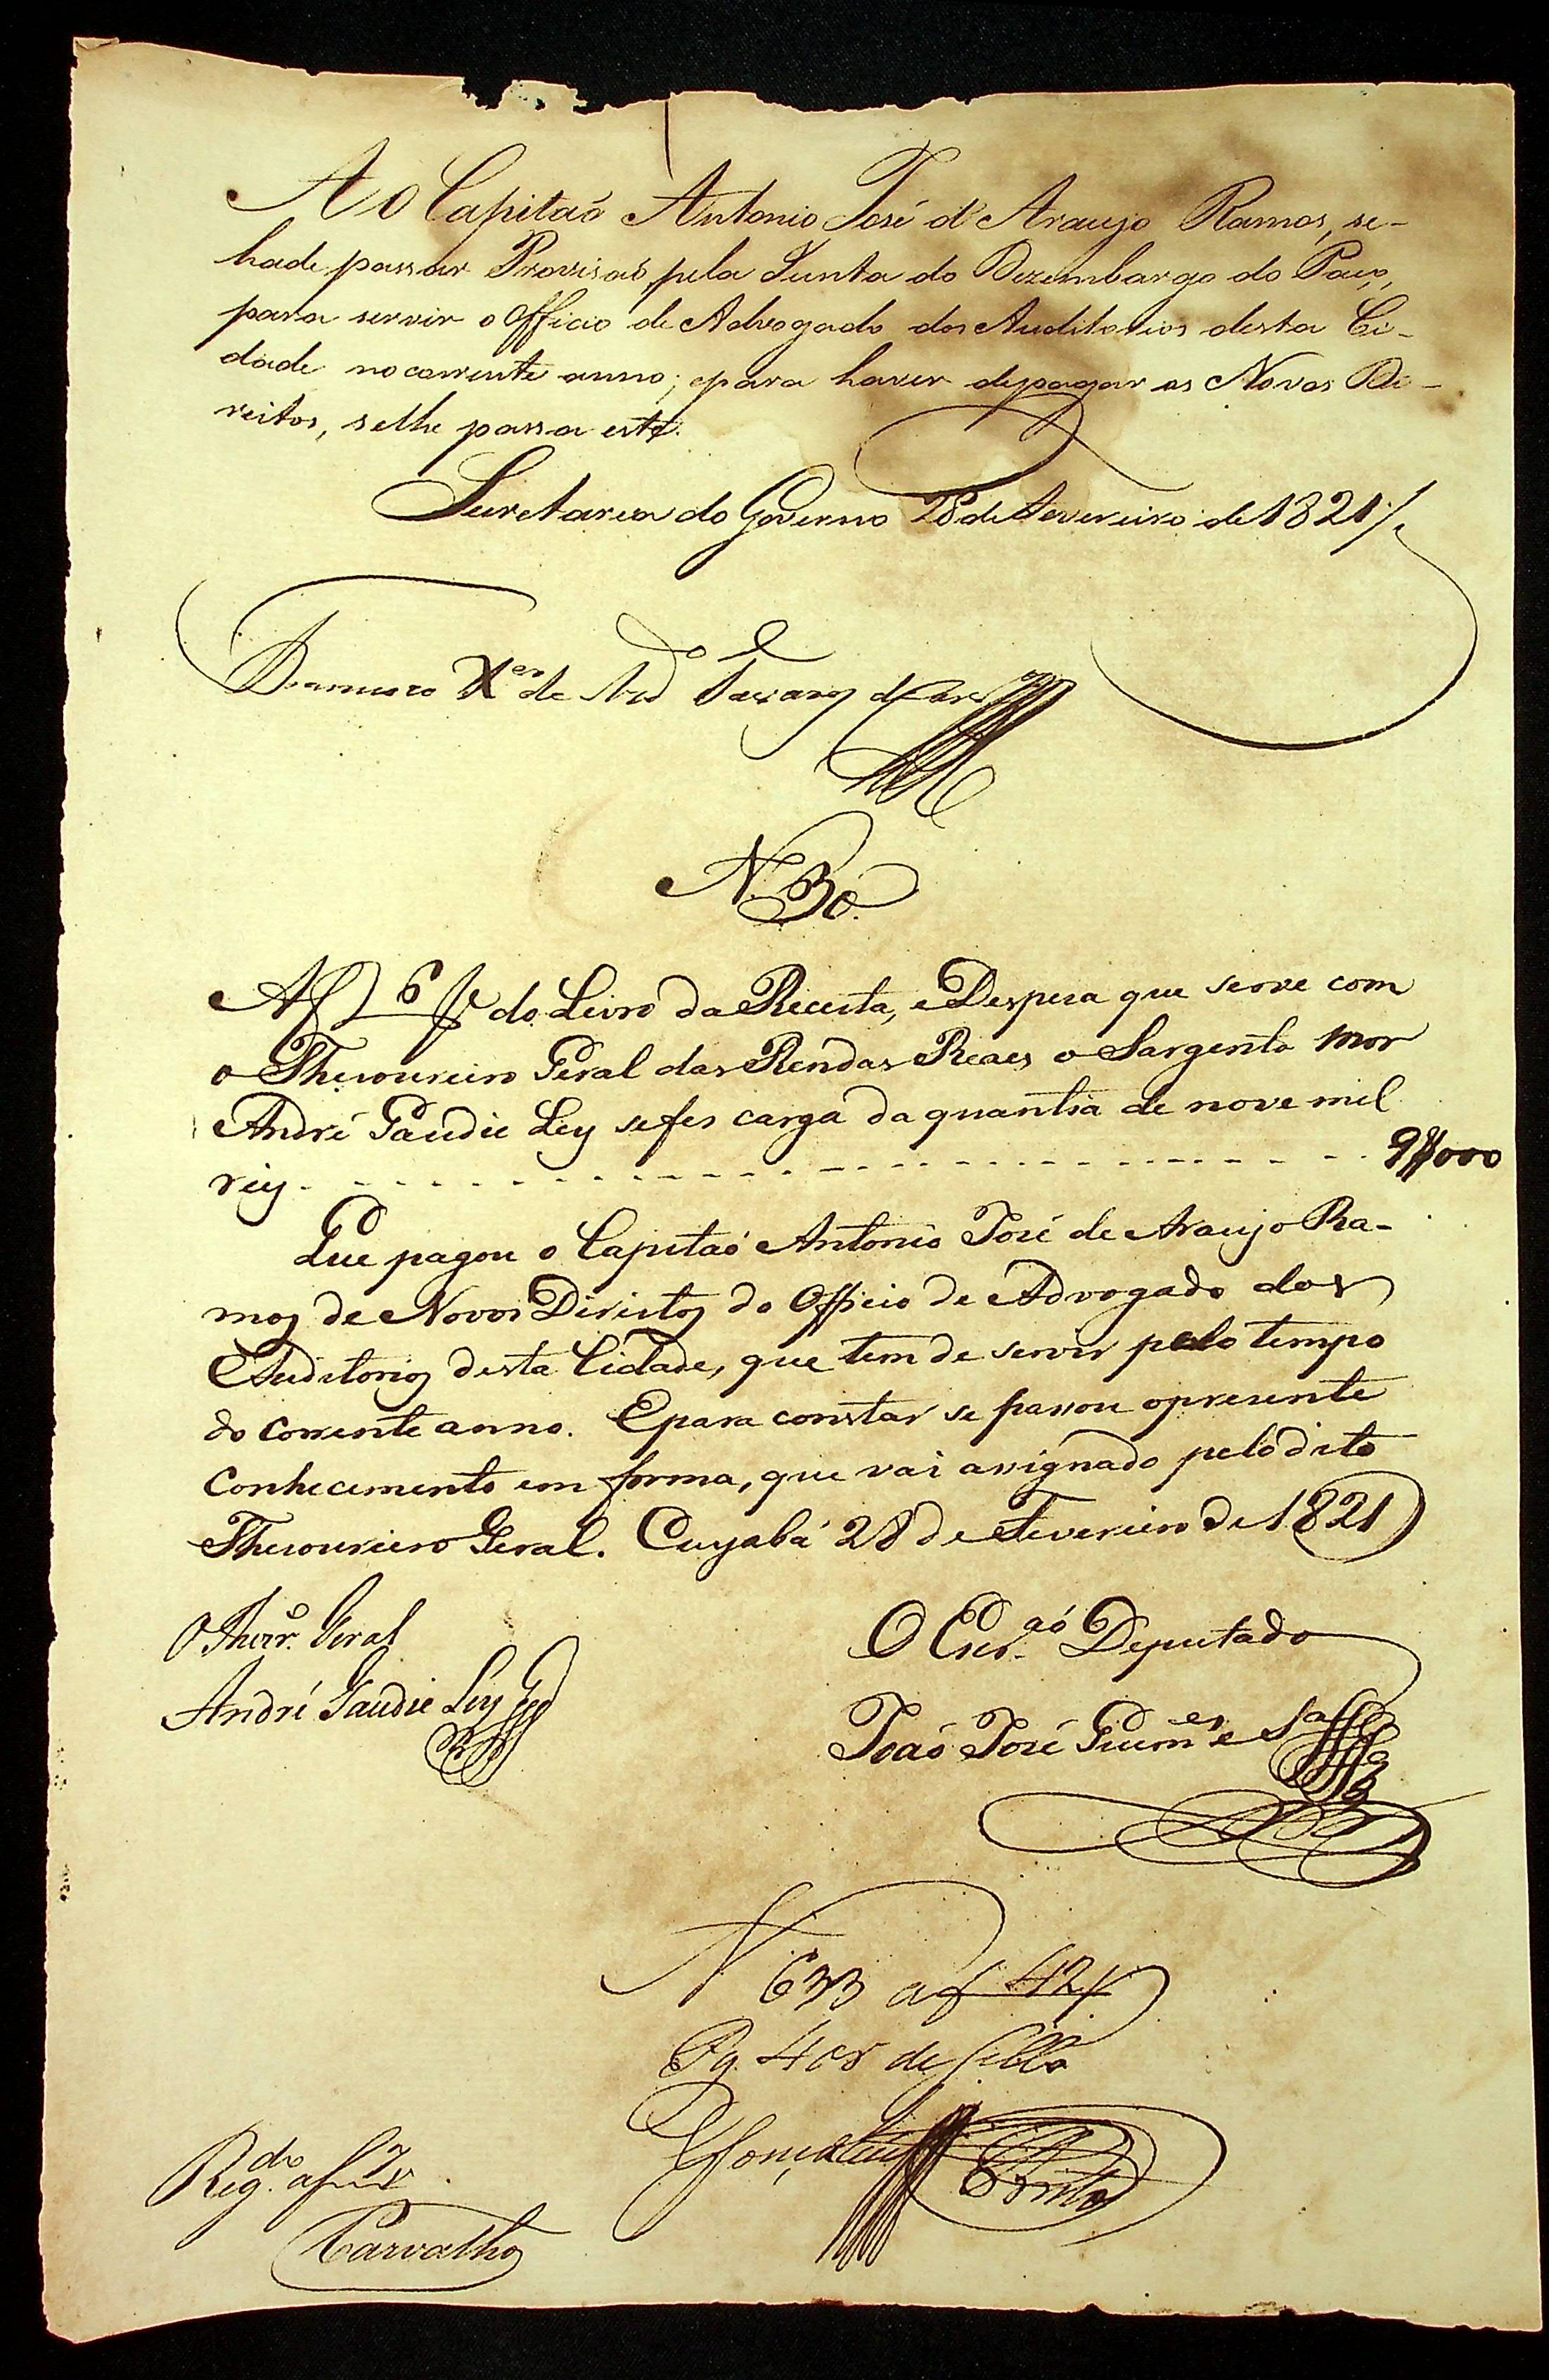 Ao Capitaõ Antonio José d'Araujo Ramos, se-
hade passar Provisaõ pela Junta do Dezembargo do Paço,
para servir o Officio de Advogado dos Auditorios desta Ci-
dade no corrente anno; epara haver depagar os Novos Di-
reitos, selhe passa este.
Secretaria do Governo 28 de Fevereiro de 1821
Xer de
N. 30.
Af 6 do Livro da Receita, e Despeza que serve com
o Thesoureiro Geral das Rendas Reaes o Sargento Mor
André Gaudie Ley sefes carga da quantia de nove mil
reis - - - - - - - - - - - - - - - - - - 9$000
Que pagou o Capitaõ Antonio José de Araujo Ra-
mos de Novos Direitos do Officio de Advogado dos
Auditorios desta Cidade, que tem de servir pelo tempo
do corrente anno. Epara constar se passou opresente
Conhecimento em forma, que vai assignado pelo dito
Thesoureiro Geral. Cuyabá 28 de Fevereiro de 1821
O Thesro. Geral
André Gaudie Ley
O Escr.aõ Deputado
Joaõ José Guim.es e Sa
N 633 af 42
Pg. 40 rs de sello
Brito
Reg.do af
Carvalho